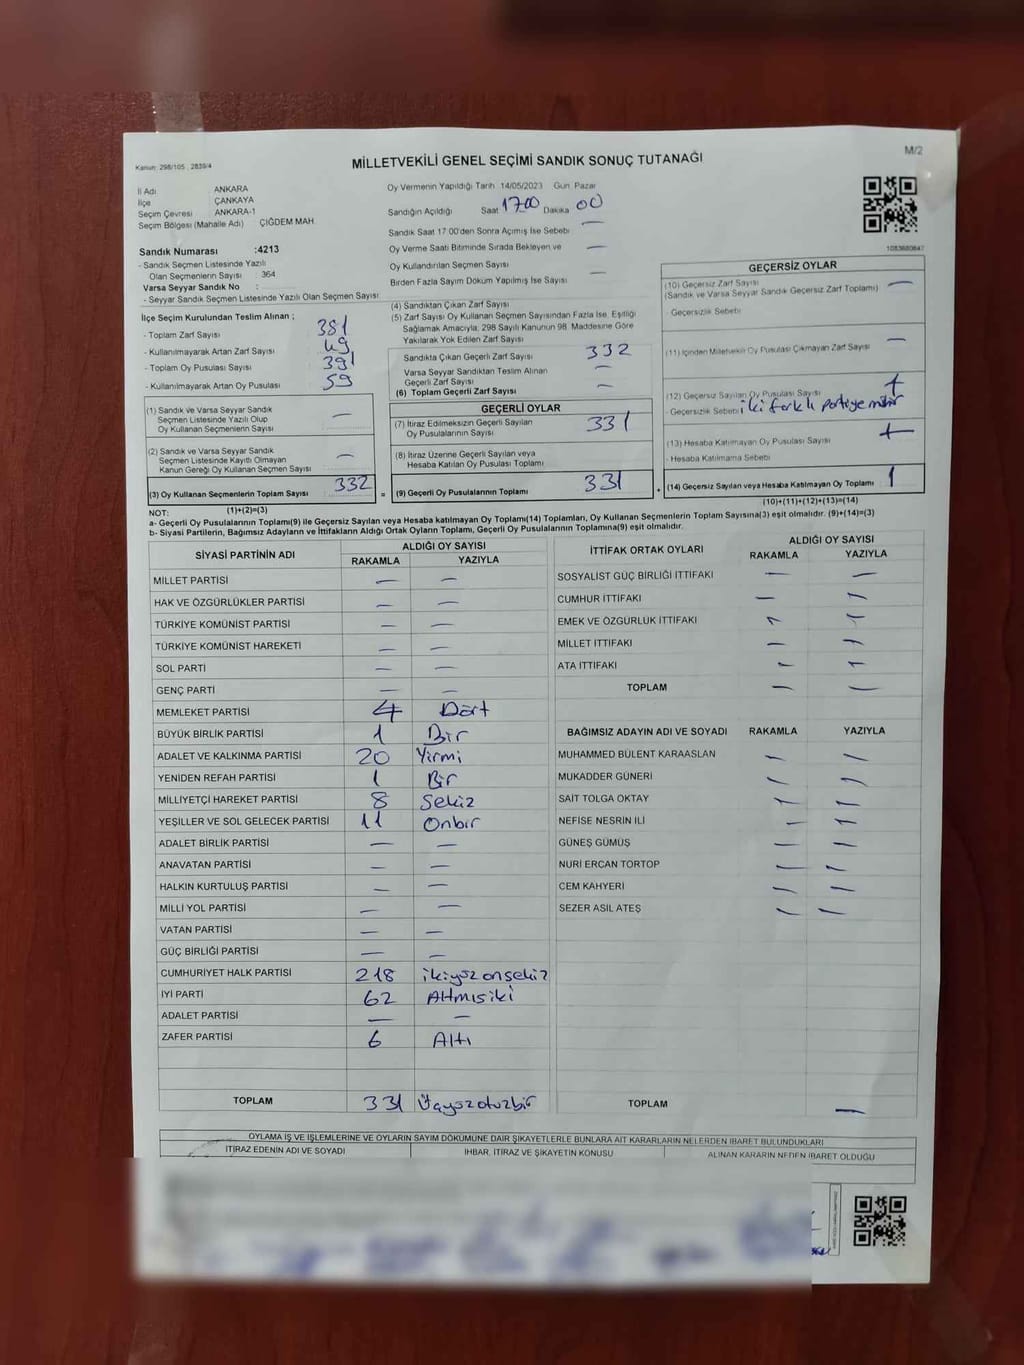 Kanun: 298/105 , 2839/4
MİLLETVEKİLİ GENEL SEÇİMİ SANDIK SONUÇ TUTANAĞI
M/2
İl Adı ANKARA
İlçe ÇANKAYA
Seçim Çevresi ANKARA-1
Seçim Bölgesi (Mahalle Adı) ÇİĞDEM MAH.
Sandık Numarası :4213
- Sandık Seçmen Listesinde Yazılı
Olan Seçmenlerin Sayısı : 364
Varsa Seyyar Sandık No :
- Seyyar Sandık Seçmen Listesinde Yazılı Olan Seçmen Sayısı
İlçe Seçim Kurulundan Teslim Alınan ;
- Toplam Zarf Sayısı 381
- Kullanılmayarak Artan Zarf Sayısı 49
- Toplam Oy Pusulası Sayısı 391
- Kullanılmayarak Artan Oy Pusulası 59
(1) Sandık ve Varsa Seyyar Sandık
Seçmen Listesinde Yazılı Olup
Oy Kullanan Seçmenlerin Sayısı —
(2) Sandık ve Varsa Seyyar Sandık
Seçmen Listesinde Kayıtlı Olmayan
Kanun Gereği Oy Kullanan Seçmen Sayısı —
(3) Oy Kullanan Seçmenlerin Toplam Sayısı 332 =
(1)+(2)=(3)
Oy Vermenin Yapıldığı Tarih 14/05/2023 Gün: Pazar
Sandığın Açıldığı Saat 17.00 Dakika 00
Sandık Saat 17:00'den Sonra Açılmış İse Sebebi —
Oy Verme Saati Bitiminde Sırada Bekleyen ve —
Oy Kullandırılan Seçmen Sayısı
Birden Fazla Sayım Döküm Yapılmış İse Sayısı —
(4) Sandıktan Çıkan Zarf Sayısı
(5) Zarf Sayısı Oy Kullanan Seçmen Sayısından Fazla İse, Eşitliği
Sağlamak Amacıyla, 298 Sayılı Kanunun 98. Maddesine Göre
Yakılarak Yok Edilen Zarf Sayısı
Sandıkta Çıkan Geçerli Zarf Sayısı 332
Varsa Seyyar Sandıktan Teslim Alınan
Geçerli Zarf Sayısı —
(6) Toplam Geçerli Zarf Sayısı —
GEÇERLİ OYLAR
(7) İtiraz Edilmeksizin Geçerli Sayılan
Oy Pusulalarının Sayısı 331
(8) İtiraz Üzerine Geçerli Sayılan veya
Hesaba Katılan Oy Pusulası Toplamı
(9) Geçerli Oy Pusulalarının Toplamı 331 +
1083680847
GEÇERSİZ OYLAR
(10) Geçersiz Zarf Sayısı —
(Sandık ve Varsa Seyyar Sandık Geçersiz Zarf Toplamı)
- Geçersizlik Sebebi
(11) İçinden Milletvekili Oy Pusulası Çıkmayan Zarf Sayısı —
(12) Geçersiz Sayılan Oy Pusulası Sayısı
- Geçersizlik Sebebi iki farklı partiye mühür
(13) Hesaba Katılmayan Oy Pusulası Sayısı
- Hesaba Katılmama Sebebi
(14) Geçersiz Sayılan veya Hesaba Katılmayan Oy Toplamı 1
(10)+(11)+(12)+(13)=(14)
NOT:
a- Geçerli Oy Pusulalarının Toplamı(9) ile Geçersiz Sayılan veya Hesaba katılmayan Oy Toplamı(14) Toplamları, Oy Kullanan Seçmenlerin Toplam Sayısına(3) eşit olmalıdır. (9)+(14)=(3)
b- Siyasi Partilerin, Bağımsız Adayların ve İttifakların Aldığı Ortak Oyların Toplamı, Geçerli Oy Pusulalarının Toplamına(9) eşit olmalıdır.
SİYASİ PARTİNİN ADI ALDIĞI OY SAYISI
RAKAMLA YAZIYLA
MİLLET PARTİSİ — —
HAK VE ÖZGÜRLÜKLER PARTİSİ — —
TÜRKİYE KOMÜNİST PARTİSİ — —
TÜRKİYE KOMÜNİST HAREKETİ — —
SOL PARTİ — —
GENÇ PARTİ — —
MEMLEKET PARTİSİ 4 Dört
BÜYÜK BİRLİK PARTİSİ 1 Bir
ADALET VE KALKINMA PARTİSİ 20 Yirmi
YENİDEN REFAH PARTİSİ 1 Bir
MİLLİYETÇİ HAREKET PARTİSİ 8 Sekiz
YEŞİLLER VE SOL GELECEK PARTİSİ 11 Onbir
ADALET BİRLİK PARTİSİ — —
ANAVATAN PARTİSİ — —
HALKIN KURTULUŞ PARTİSİ — —
MİLLİ YOL PARTİSİ — —
VATAN PARTİSİ — —
GÜÇ BİRLİĞİ PARTİSİ — —
CUMHURİYET HALK PARTİSİ 218 ikiyüzonsekiz
İYİ PARTİ 62 Altmışiki
ADALET PARTİSİ — —
ZAFER PARTİSİ 6 Altı
TOPLAM 331 Üçyüzotuzbir
İTTİFAK ORTAK OYLARI ALDIĞI OY SAYISI
RAKAMLA YAZIYLA
SOSYALİST GÜÇ BİRLİĞİ İTTİFAKI — —
CUMHUR İTTİFAKI — —
EMEK VE ÖZGÜRLÜK İTTİFAKI — —
MİLLET İTTİFAKI — —
ATA İTTİFAKI — —
TOPLAM — —
BAĞIMSIZ ADAYIN ADI VE SOYADI RAKAMLA YAZIYLA
MUHAMMED BÜLENT KARAASLAN — —
MUKADDER GÜNERİ — —
SAİT TOLGA OKTAY — —
NEFİSE NESRİN İLİ — —
GÜNEŞ GÜMÜŞ — —
NURİ ERCAN TORTOP — —
CEM KAHYERİ — —
SEZER ASIL ATEŞ — —
TOPLAM —
OYLAMA İŞ VE İŞLEMLERİNE VE OYLARIN SAYIM DÖKÜMÜNE DAİR ŞİKAYETLERLE BUNLARA AİT KARARLARIN NELERDEN İBARET BULUNDUKLARI
İTİRAZ EDENİN ADI VE SOYADI İHBAR, İTİRAZ VE ŞİKAYETİN KONUSU ALINAN KARARIN NEDEN İBARET OLDUĞU